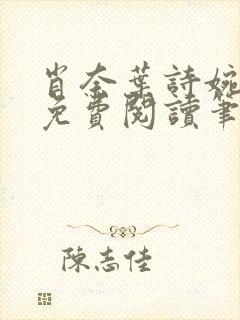 肖奈葉詩婉
免費閱讀筆
陳志佳